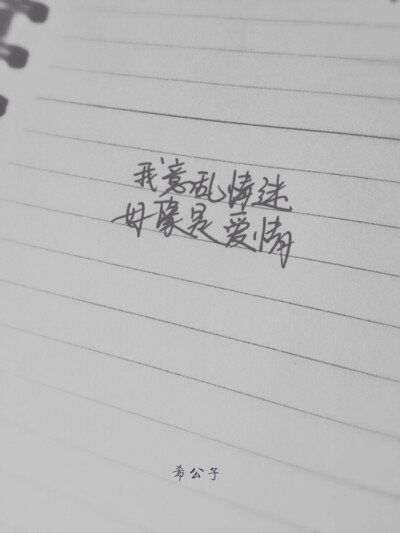 我意乱情迷
好像是爱情
希公子